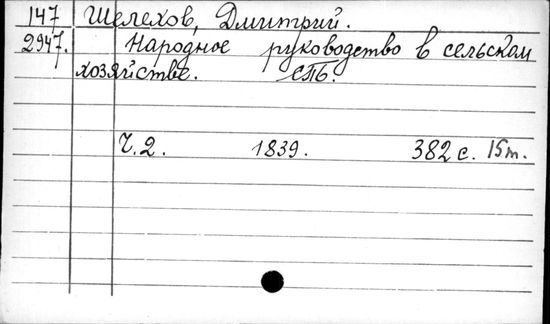 147 Шелехов, Дмитрий.
2947. Народное руководство в сельском
хозяйстве. СПб.
Ч.2. 1839. 382 с. 15т.